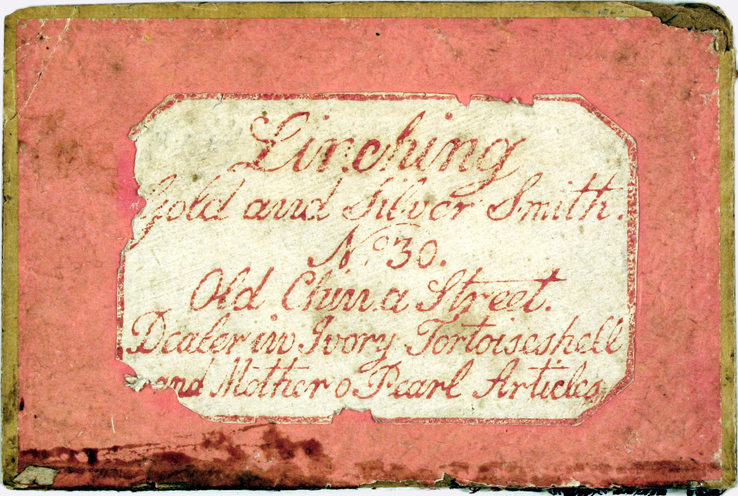 Linching
Gold and Silver Smith.
No. 30.
Old China Street.
Dealer in Ivory Tortoiseshell
and Mother o Pearl Articles